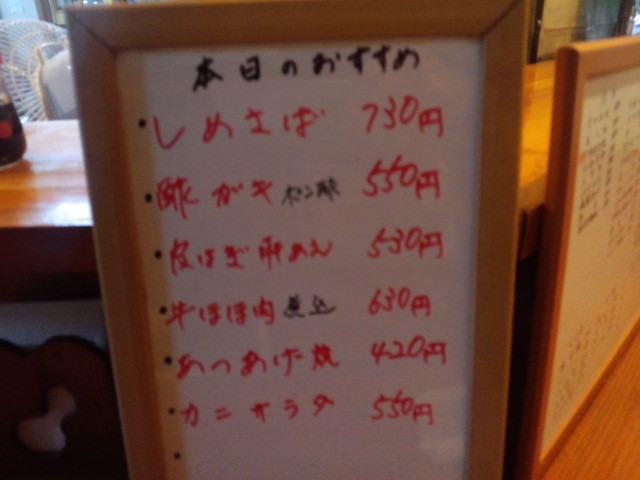 本日のおすすめ
・しめさば 730円
・酢ガキ ポン酢 550円
・皮はぎ肝あえ 530円
・牛ほほ肉 煮込 630円
・あつあげ焼 420円
・カニサラダ 550円
・